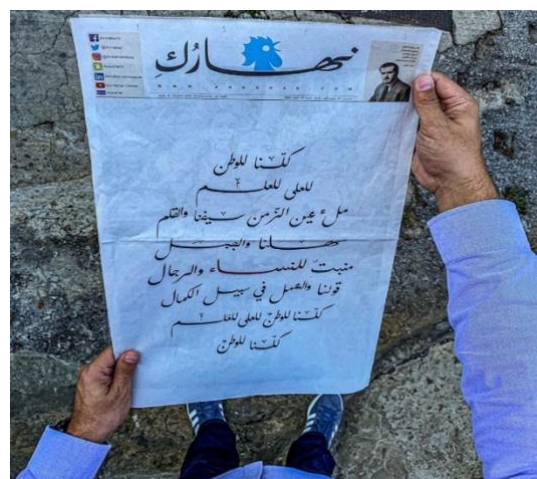 نهارُكِ
WWW.ANNAHAR.COM
كلّنا للوطن
للعلى للعلم
ملء عين الزّمن سيفنا والقلم
سهلنا والجبل
منبتٌ للنساء والرجال
قولنا والعمل في سبيل الكمال
كلّنا للوطن للعلى للعلم
كلّنا للوطن